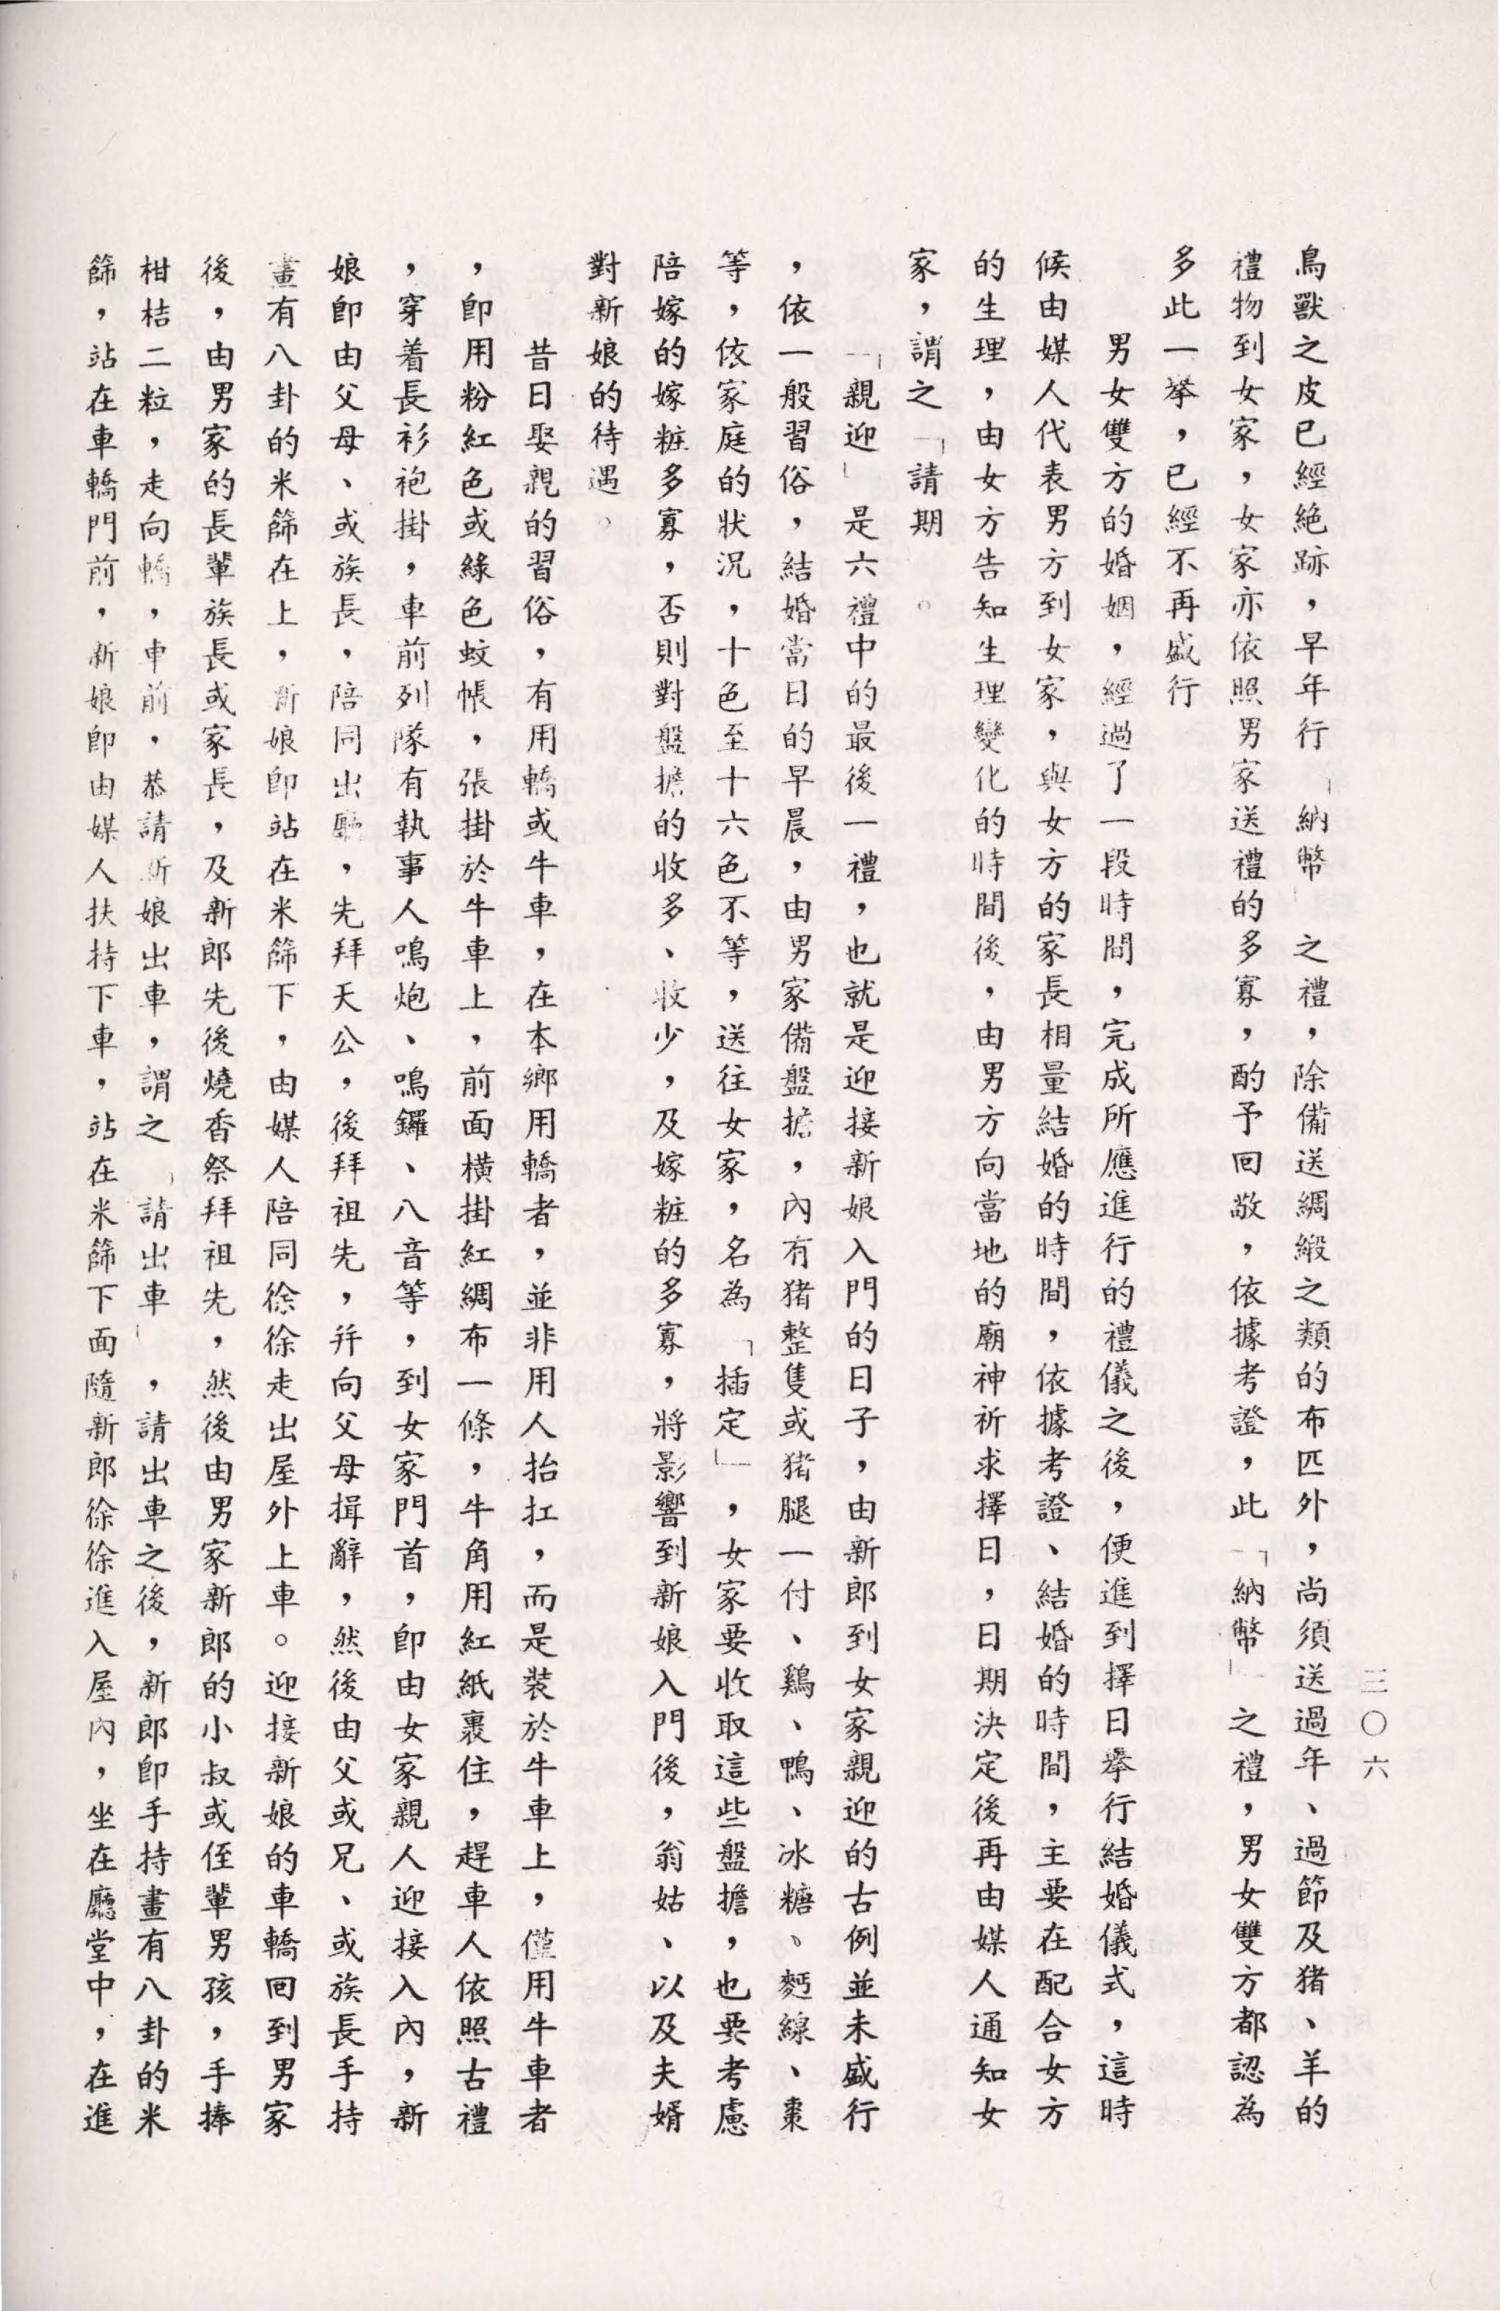 三〇六
鳥獸之皮已經絕跡，早年行「納幣」之禮，除備送綢緞之類的布匹外，尚須送過年、過節及猪、羊的
禮物到女家，女家亦依照男家送禮的多寡，酌予回敬，依據考證，此「納幣」之禮，男女雙方都認為
多此一舉，已經不再盛行
男女雙方的婚姻，經過了一段時間，完成所應進行的禮儀之後，便進到擇日舉行結婚儀式，這時
候由媒人代表男方到女家，與女方的家長相量結婚的時間，依據考證、結婚的時間，主要在配合女方
的生理，由女方告知生理變化的時間後，由男方向當地的廟神祈求擇日，日期決定後再由媒人通知女
家，謂之「請期。
「親迎」是六禮中的最後一禮，也就是迎接新娘入門的日子，由新郎到女家親迎的古例並未盛行
，依一般習俗，結婚當日的早晨，由男家備盤擔，內有猪整隻或猪腿一付、鷄、鴨、冰糖、麪線、棗
等，依家庭的狀況，十色至十六色不等，送往女家，名為「插定」，女家要收取這些盤擔，也要考慮
陪嫁的嫁粧多寡，否則對盤擔的收多、收少，及嫁粧的多寡，將影響到新娘入門後，翁姑、以及夫婿
對新娘的待遇。
昔日娶親的習俗，有用轎或牛車，在本鄉用轎者，並非用人抬扛，而是裝於牛車上，僅用牛車者
，卽用粉紅色或綠色蚊帳，張掛於牛車上，前面橫掛紅綢布一條，牛角用紅紙裹住，趕車人依照古禮
，穿着長衫袍掛，車前列隊有執事人鳴炮、鳴鑼、八音等，到女家門首，卽由女家親人迎接入內，新
娘卽由父母、或族長，陪同出廳，先拜天公，後拜祖先，幷向父母揖辭，然後由父或兄、或族長手持
畫有八卦的米篩在上，新娘卽站在米篩下，由媒人陪同徐徐走出屋外上車。迎接新娘的車轎回到男家
後，由男家的長輩族長或家長，及新郎先後燒香祭拜祖先，然後由男家新郎的小叔或侄輩男孩，手捧
柑桔二粒，走向轎，車前，恭請新娘出車，謂之「請出車」，請出車之後，新郎卽手持畫有八卦的米
篩，站在車轎門前，新娘卽由媒人扶持下車，站在米篩下面隨新郎徐徐進入屋內，坐在廳堂中，在進